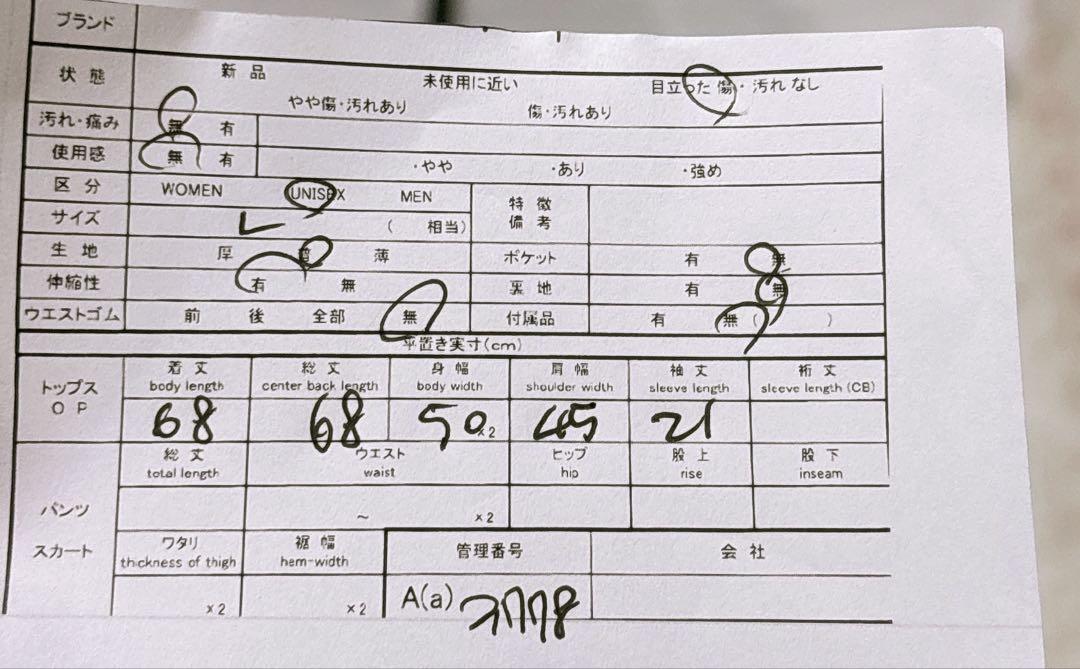 ブランド
状態 新品 未使用に近い 目立った傷・汚れなし
やや傷・汚れあり 傷・汚れあり
汚れ・痛み 無 有
使用感 無 有 ・やや ・あり ・強め
区分 WOMEN UNISEX MEN 特徴
サイズ L ( 相当) 備考
生地 厚 普 薄 ポケット 有 無
伸縮性 有 無 裏地 有 無
ウエストゴム 前 後 全部 無 付属品 有 無 ( )
平置き実寸(cm)
着丈 総丈 身幅 肩幅 袖丈 裄丈
トップス body length center back length body width shoulder width sleeve length sleeve length (CB)
OP 68 68 50 ×2 45 21
総丈 ウエスト ヒップ 股上 股下
total length waist hip rise inseam
パンツ ～ ×2
スカート ワタリ 裾幅 管理番号 会社
thickness of thigh hem-width
×2 ×2 A(a)